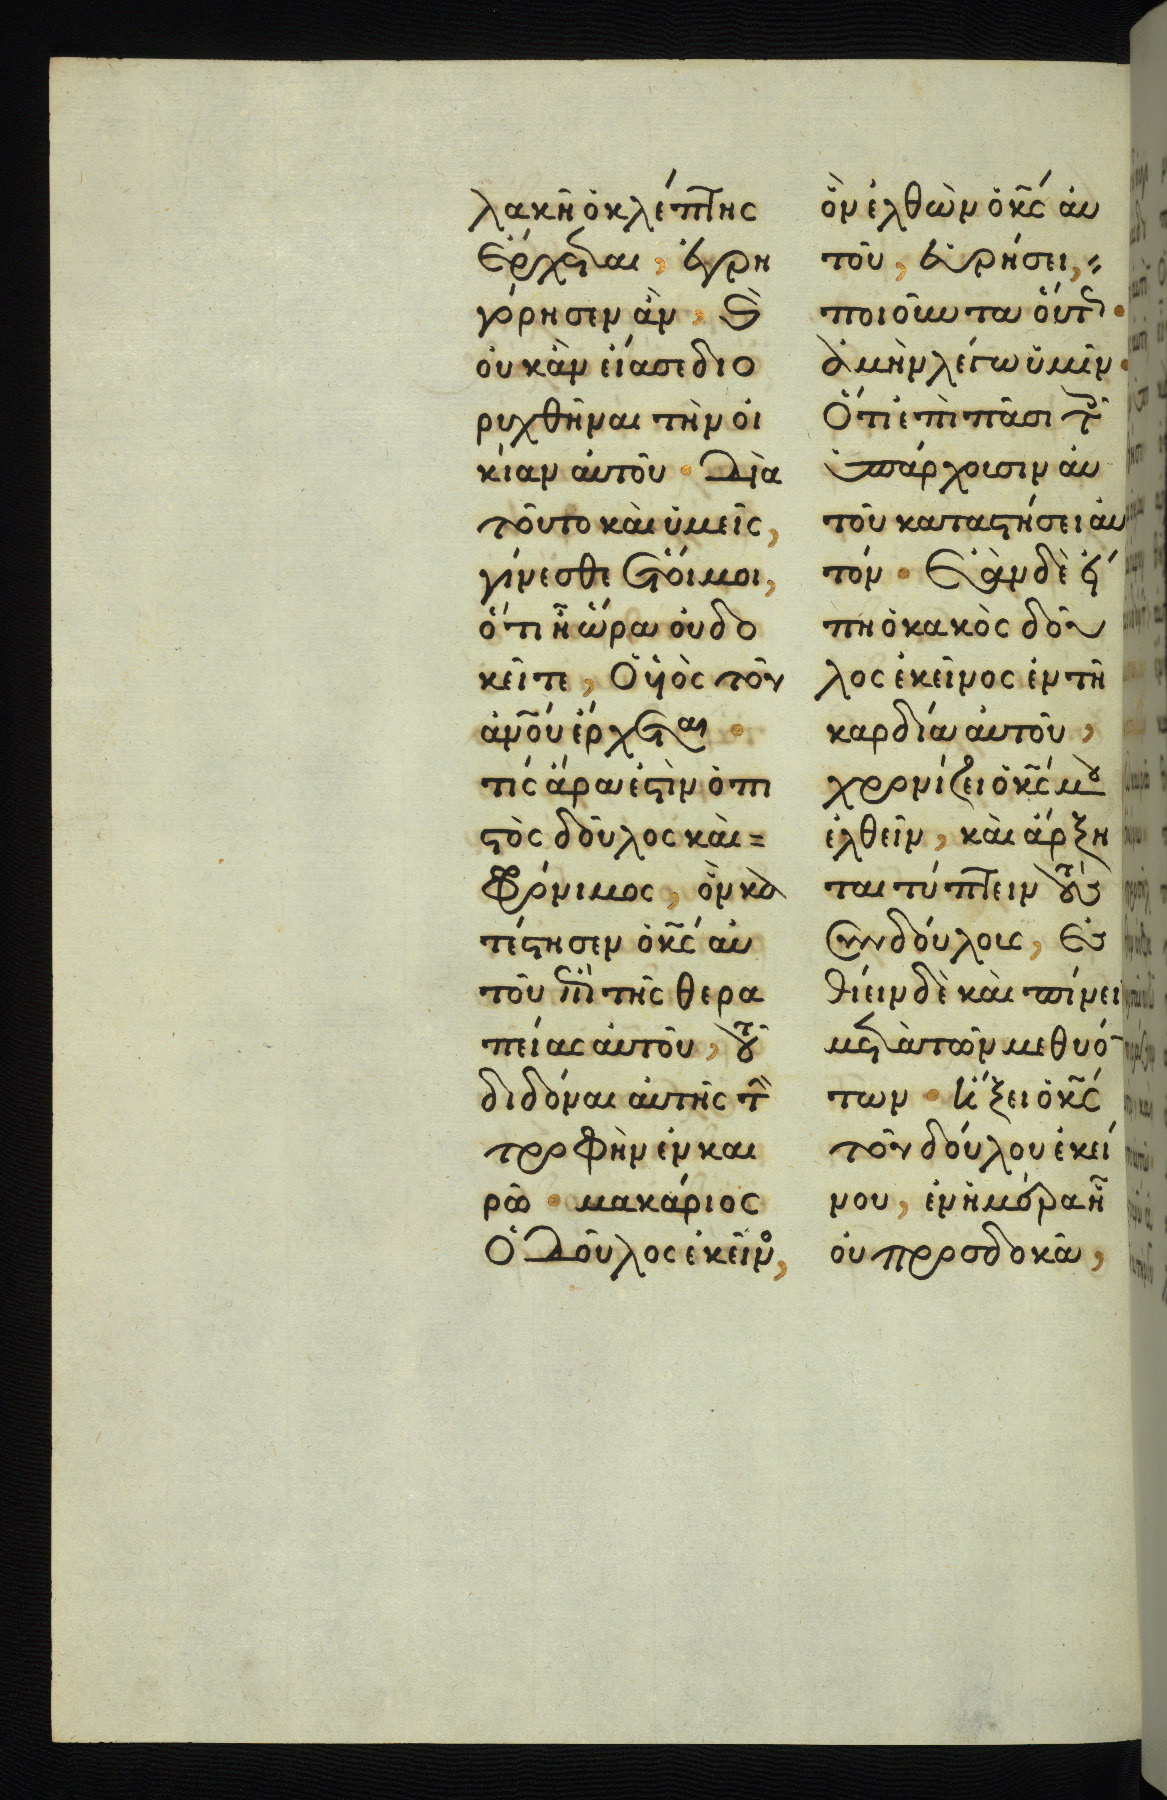 λακῆ ὁ κλέπτης
ἔρχεται, ἐγρη
γόρησεν ἂν, καὶ
οὐκ ἂν εἴασε διο
ρυχθῆναι τὴν οἰ
κίαν αὐτοῦ· Διὰ
τοῦτο καὶ ὑμεῖς,
γίνεσθε ἕτοιμοι,
ὅτι ἧ ὥρα οὐ δο
κεῖτε, Ὁ ὑιὸς τοῦ
ἀν̅ου ἔρχεται·
τίς ἄρα ἐστὶν ὁ πι
στὸς δοῦλος καὶ=
Φρόνιμος, ὃν κα
τέστησεν ὁ κ̅ς αὐ
τοῦ ἐπὶ τῆς θερα
πείας αὐτοῦ, τοῦ
διδόναι αὐτῆς τὴν
τροφὴν ἐν και
ρῶ· μακάριος
Ὁ Δοῦλος ἐκεῖνος,
ὃν ἐλθὼν ὁ κ̅ς αὐ
τοῦ, εὑρήσει,=
ποιοῦντα οὕτως·
ἀμὴν λέγω ὑμῖν·
Ὅτι ἐπὶ πᾶσι τοῖς
ὑπάρχουσιν αὐ
τοῦ καταστήσει αὐ
τόν· Ἐὰν δὲ εἴ
πη ὁ κακὸς δοῦ
λος ἐκεῖνος ἐν τῆ
καρδία αὐτοῦ,
χρονίζει ὁ κ̅ς μου
ἐλθεῖν, καὶ ἄρξη
ται τύπτειν τοὺς
συνδούλους, ἐσ
θίειν δὲ καὶ πίνει
μετὰ τῶν μεθυόν
των· ἥξει ὁ κ̅ς
τοῦ δούλου ἐκεί
νου, ἐν ἡμέρα ἧ
οὐ προσδοκᾶ,